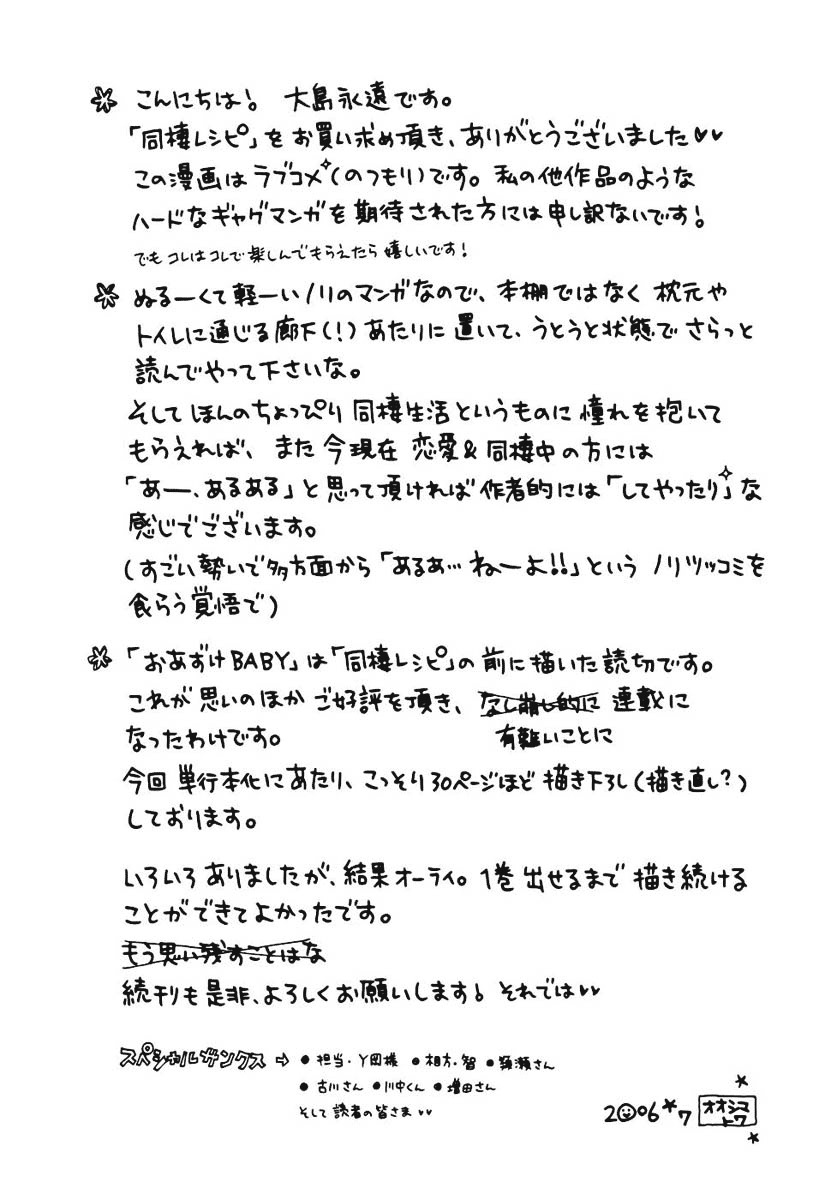 こんにちは! 大島永遠です。
「同棲レシピ」をお買い求め頂き、ありがとうございました♥♥
この漫画はラブコメ(のつもり)です。私の他作品のような
ハードなギャグマンガを期待された方には申し訳ないです!
でもコレはコレで楽しんでもらえたら嬉しいです!
ぬるーくて軽ーいノリのマンガなので、本棚ではなく枕元や
トイレに通じる廊下(!)あたりに置いて、うとうと状態でさらっと
読んでやって下さいな。
そしてほんのちょっぴり同棲生活というものに憧れを抱いて
もらえれば、また今現在恋愛&同棲中の方には
「あー、あるある」と思って頂ければ作者的には「してやったり」な
感じでございます。
(すごい勢いで多方面から「あるあ…ねーよ!!」というノリツッコミを
食らう覚悟で)
「おあずけBABY」は「同棲レシピ」の前に描いた読切です。
これが思いのほかご好評を頂き、なし崩し的に連載に
なったわけです。 有難いことに
今回単行本化にあたり、こっそり30ページほど描き下ろし(描き直し?)
しております。
いろいろありましたが、結果オーライ。1巻出せるまで描き続ける
ことができてよかったです。
もう思い残すことはな
続刊も是非、よろしくお願いします! それでは♥♥
スペシャルサンクス⇨ ●担当・Y岡様 ●相方・智 ●額瀬さん
●古川さん ●川中くん ●増田さん
そして読者の皆さま♥♥
2006★7 オオシマ
トワ